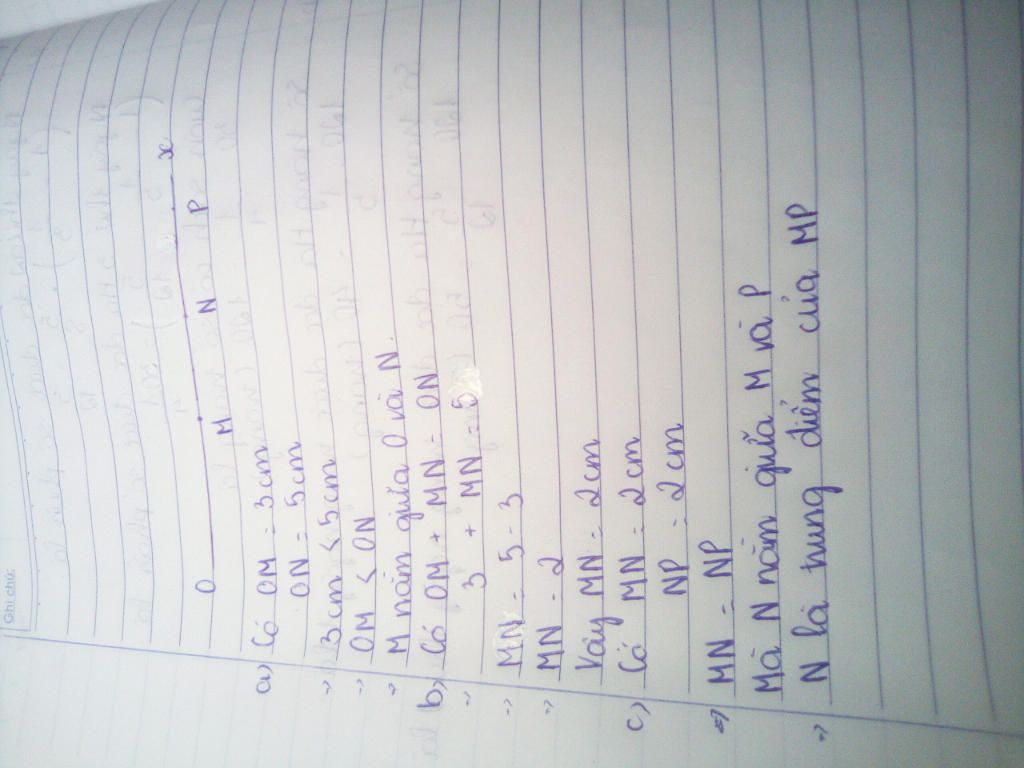 Ghi chú:
O M N P x
a) Có OM = 3cm
ON = 5cm
=> 3cm < 5cm
=> OM < ON
=> M nằm giữa O và N.
b) Có OM + MN = ON
=> 3 + MN = 5
=> MN = 5 - 3
=> MN = 2
Vậy MN = 2cm
c) Có MN = 2cm
NP = 2cm
=> MN = NP
Mà N nằm giữa M và P
=> N là trung điểm của MP